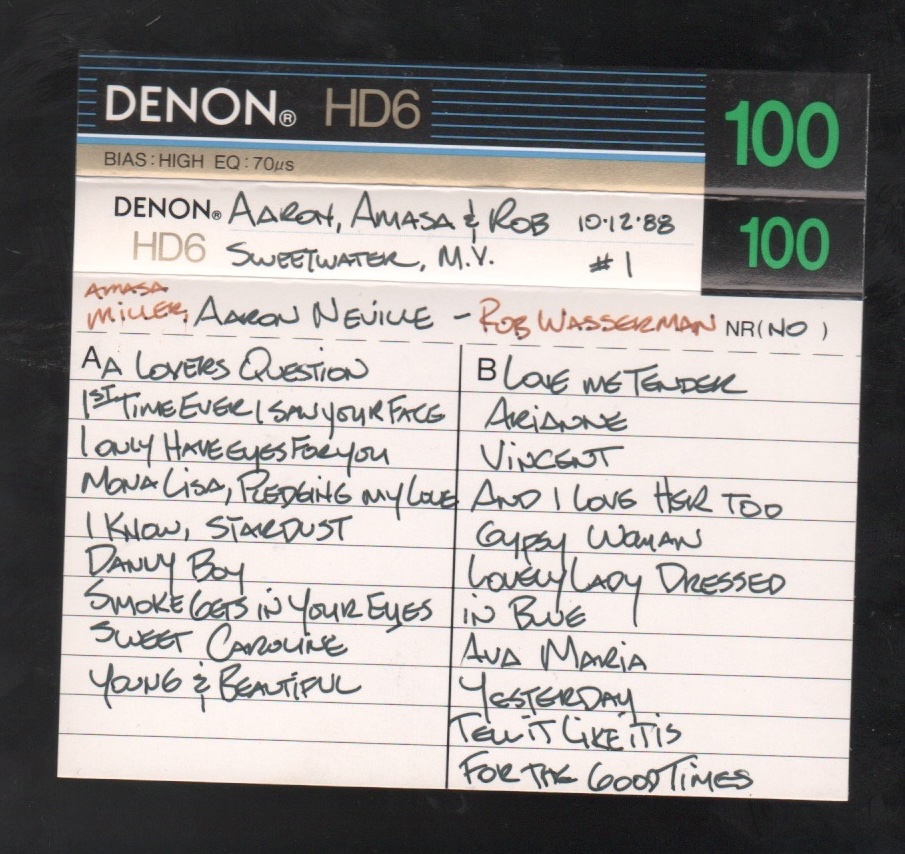 DENON® HD6
100
BIAS:HIGH EQ:70µs
DENON® AARON, AMASA & ROB 10·12·88
HD6 SWEETWATER, M.V. #1
100
AMASA
MILLER, AARON NEVILLE - ROB WASSERMAN NR(NO )
A A LOVERS QUESTION
1ST TIME EVER I SAW YOUR FACE
I ONLY HAVE EYES FOR YOU
MONA LISA, PLEDGING MY LOVE
I KNOW, STARDUST
DANNY BOY
SMOKE GETS IN YOUR EYES
SWEET CAROLINE
YOUNG & BEAUTIFUL
B LOVE ME TENDER
ARIANNE
VINCENT
AND I LOVE HER TOO
GYPSY WOMAN
LOVELY LADY DRESSED
IN BLUE
AVA MARIA
YESTERDAY
TELL IT LIKE IT IS
FOR THE GOOD TIMES